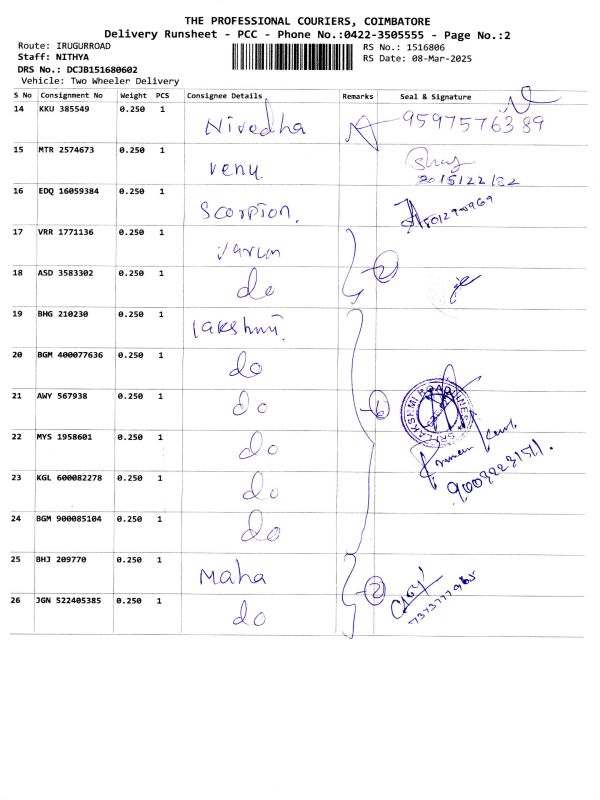 THE PROFESSIONAL COURIERS, COIMBATORE
Delivery Runsheet - PCC - Phone No.:0422-3505555 - Page No.:2
Route: IRUGURROAD RS No.: 1516806
Staff: NITHYA RS Date: 08-Mar-2025
DRS No.: DCJB151680602
Vehicle: Two Wheeler Delivery
S No Consignment No Weight PCS Consignee Details Remarks Seal & Signature
14 KKU 385549 0.250 1 Nivedha 9597576389
15 MTR 2574673 0.250 1 venu
16 EDQ 16059384 0.250 1 Scorpion.
17 VRR 1771136 0.250 1 varun 2
18 ASD 3583302 0.250 1 do
19 BHG 210230 0.250 1 Lakshmi.
20 BGM 400077636 0.250 1 do
21 AWY 567938 0.250 1 do 6
22 MYS 1958601 0.250 1 do
23 KGL 600082278 0.250 1 do
24 BGM 900085104 0.250 1 do
25 BHJ 209770 0.250 1 Maha 2
26 JGN 522405385 0.250 1 do